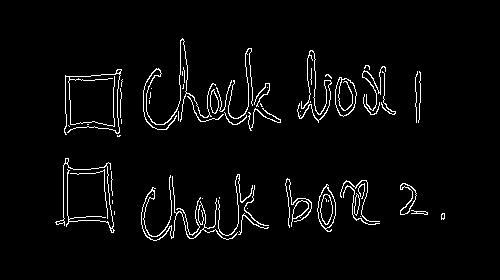 check box 1
check box 2.